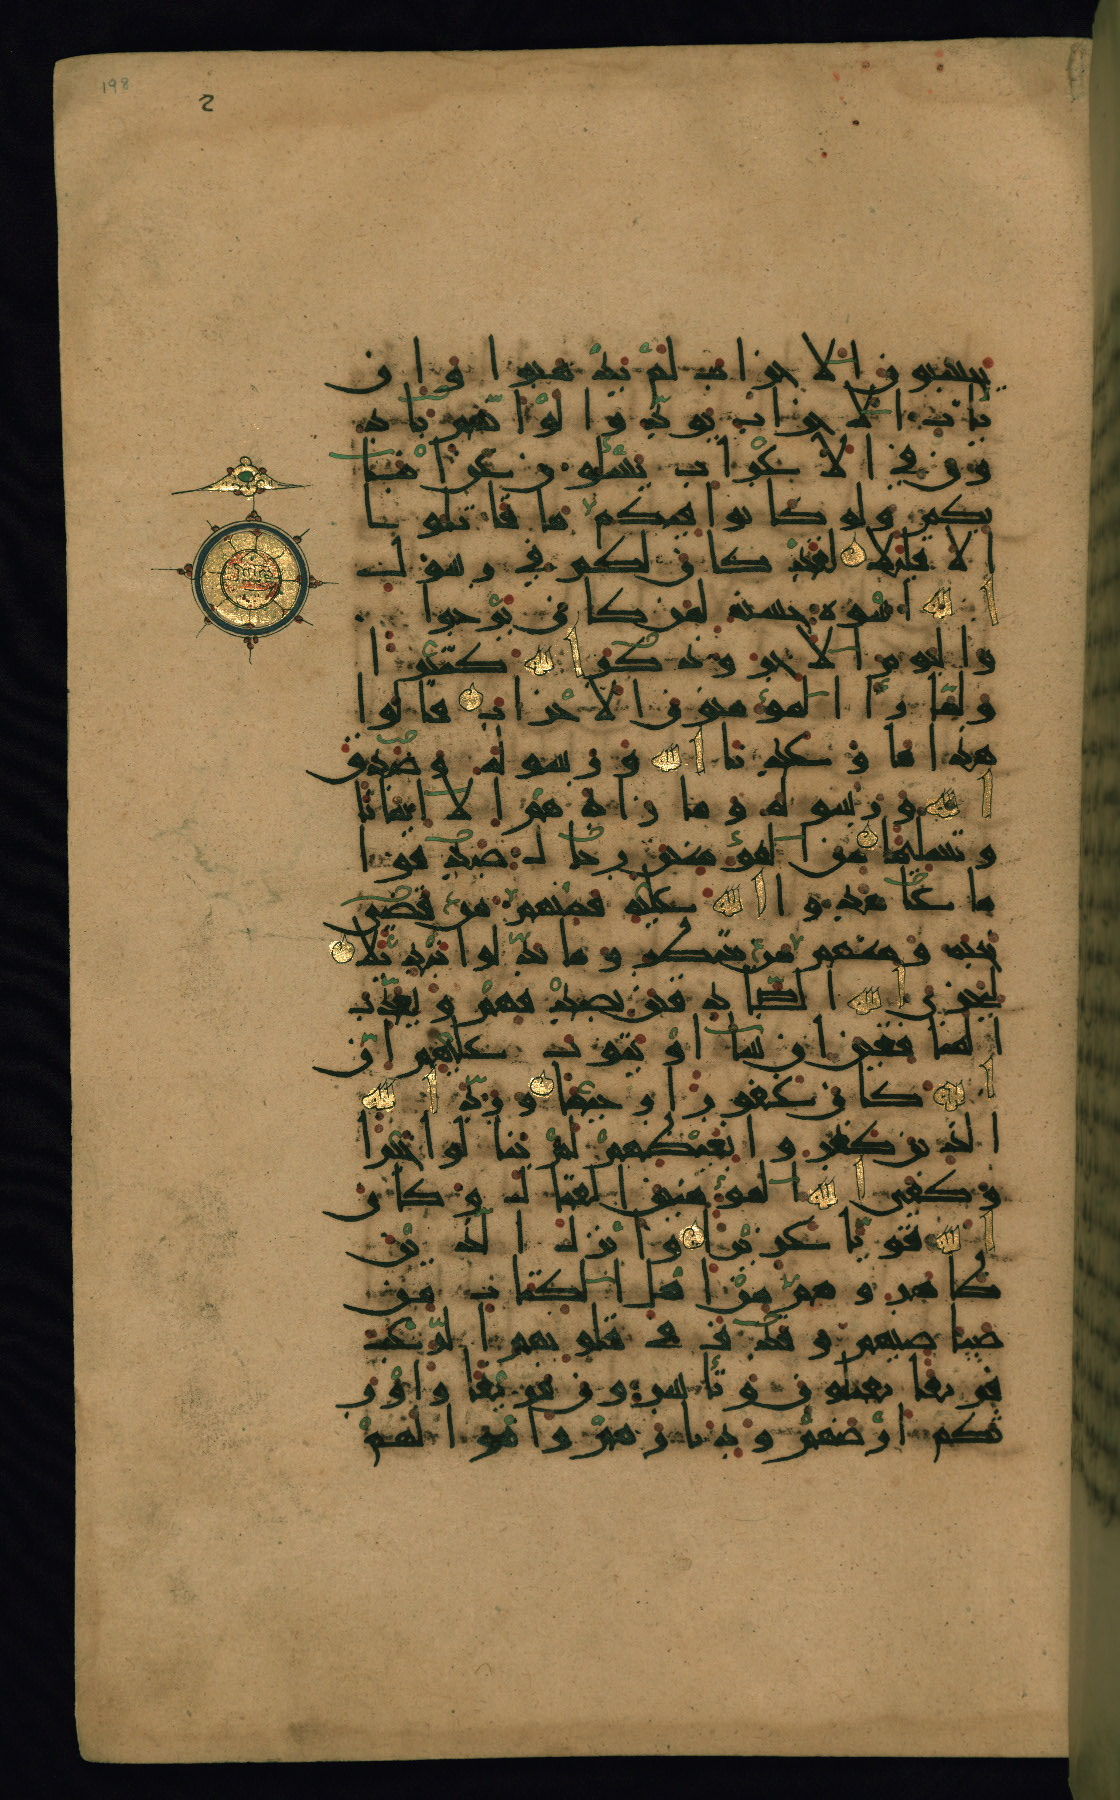 198
2
يحسبون الاحزاب لم يذهبوا وان
يات الاحزاب يودوا لو انهم باد
ون في الاعراب يسئلون عن انبا
ئكم ولو كانوا فيكم ما قاتلوا
الا قليلا لقد كان لكم في رسول
الله اسوة حسنة لمن كان يرجوا
واليوم الاخر وذكر الله كثيرا
ولما را المؤمنون الاحزاب قالوا
هذا ما وعدنا الله ورسوله وصدق
الله ورسوله وما زادهم الا ايمانا
وتسليما من المؤمنين رجال صدقوا
ما عاهدوا الله عليه فمنهم من قضى
نحبه ومنهم من ينتظر وما بدلوا تبديلا
ليجزي الله الصادقين بصدقهم ويعذب
المنافقين ان شا او يتوب عليهم ان
الله كان غفورا رحيما ورد الله
الذين كفروا بغيظهم لم ينالوا خيرا
وكفى الله المؤمنين القتال وكان
الله قويا عزيزا وانزل الذين
ظاهروهم من اهل الكتاب من
صياصيهم وقذف في قلوبهم الرعب
فريقا تقتلون وتاسرون فريقا واور
ثكم ارضهم وديارهم واموالهم